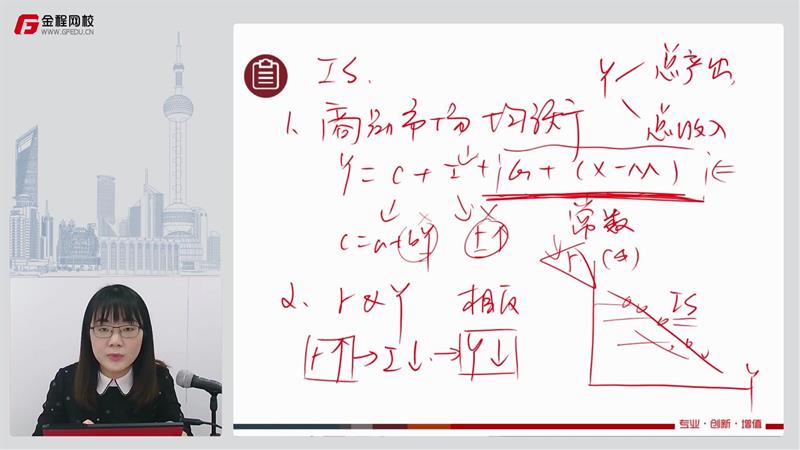 金程网校
WWW.GFEDU.CN
IS.
Y 总产出
总收入
1、商品市场均衡
Y = C + I↓ + G + (X-M)
C = a + bY r↑ 常数
2、r & Y 相反
r↑ → I↓ → Y↓
r
IS
Y
专业·创新·增值